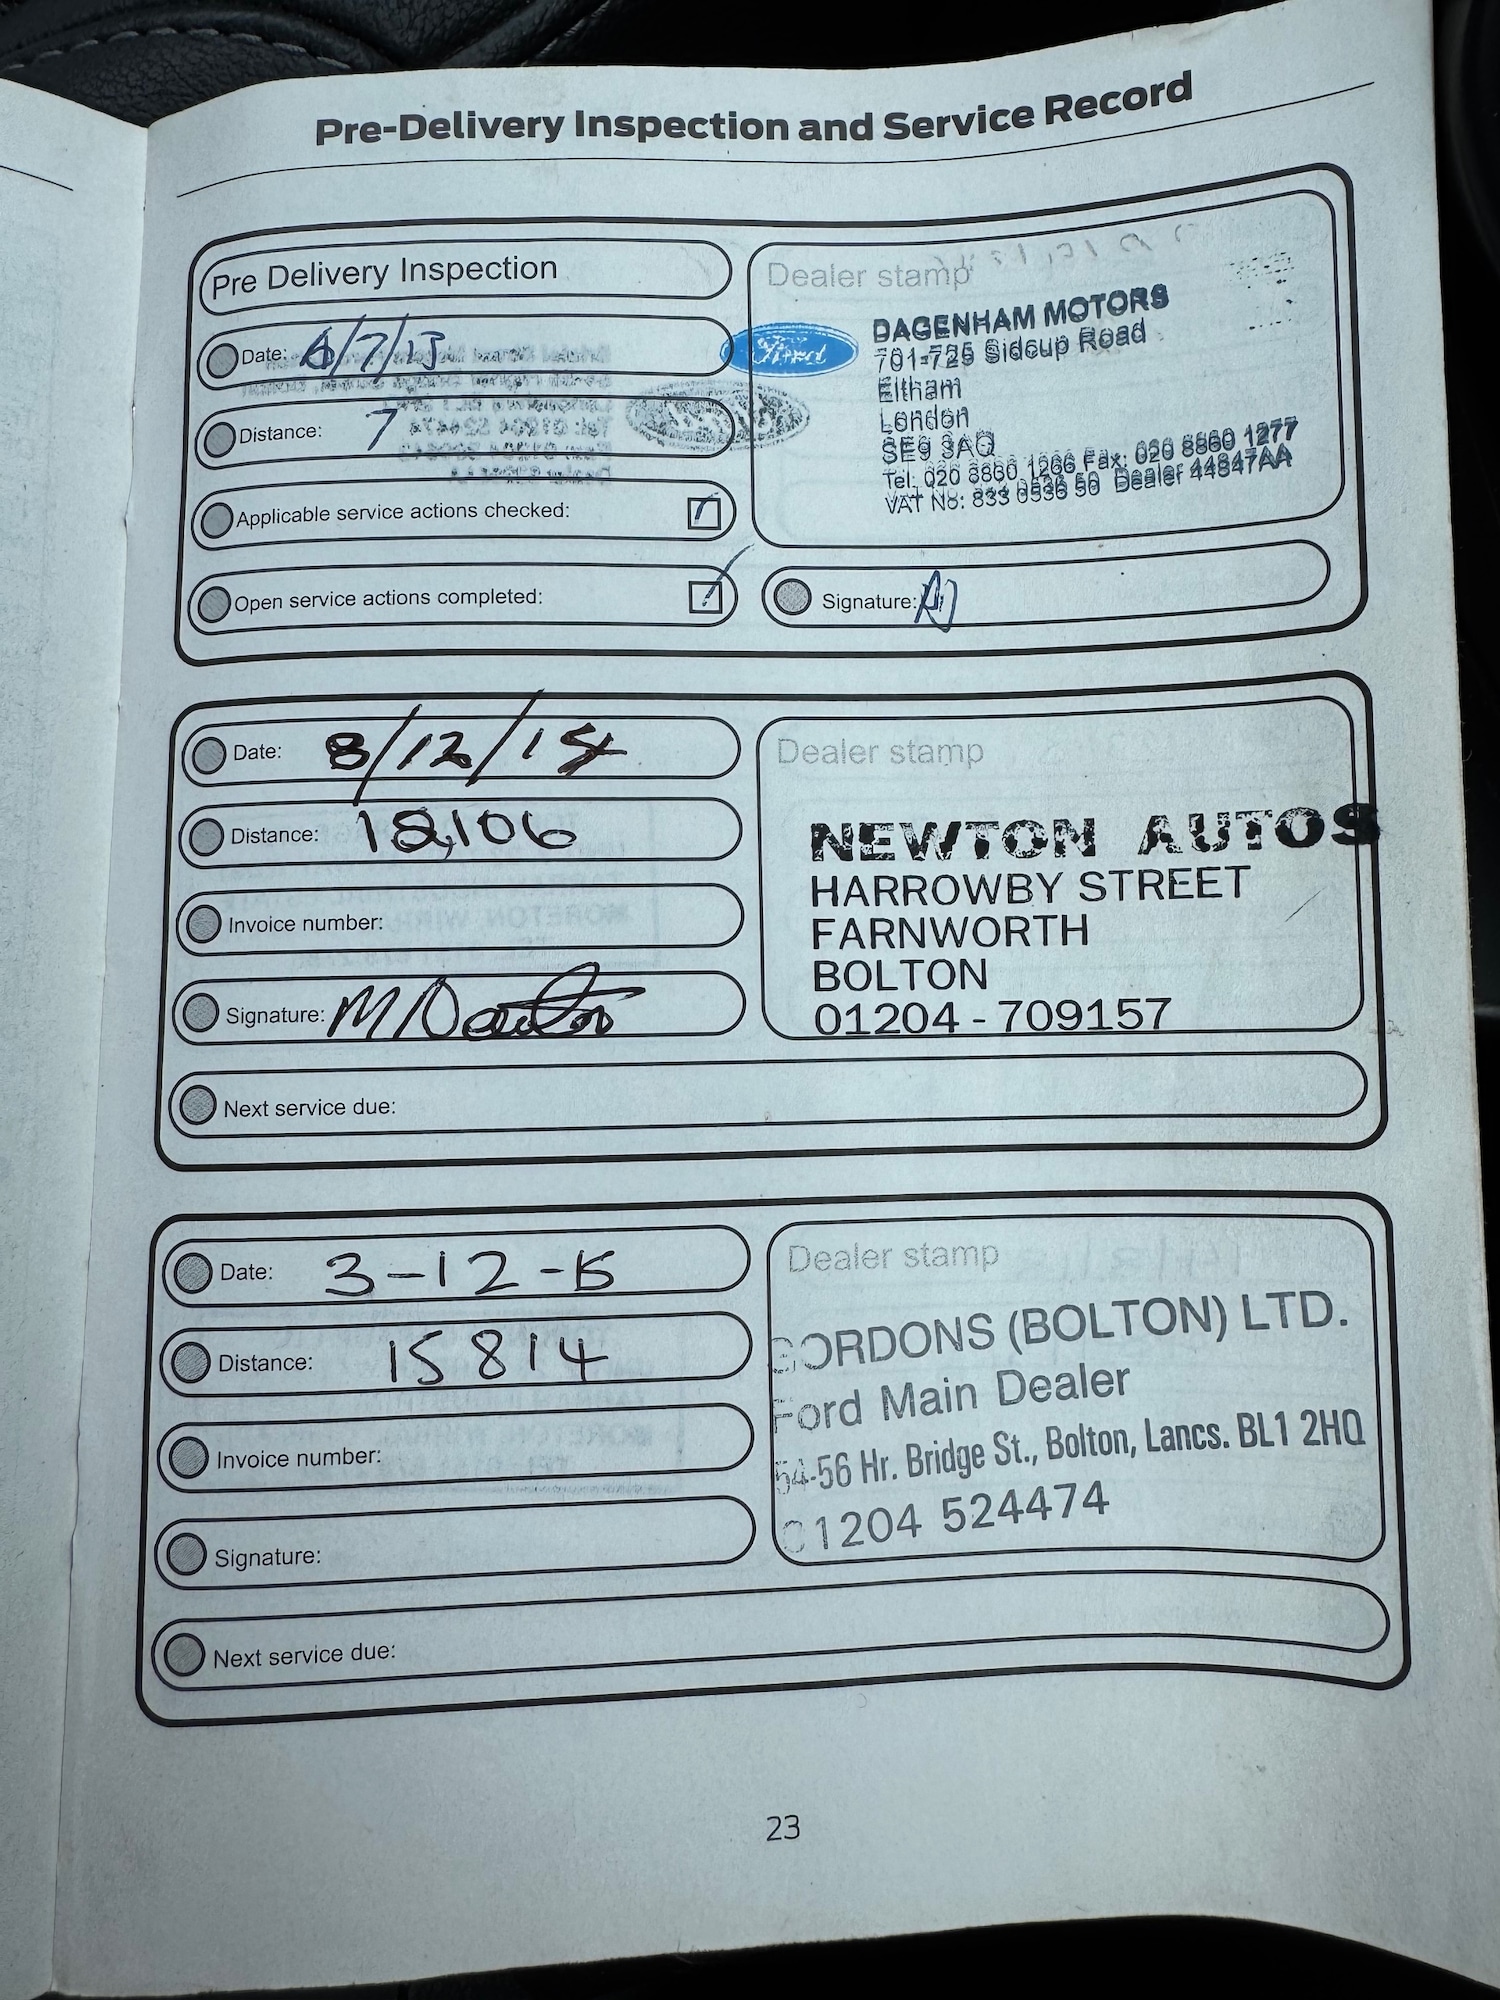 Pre-Delivery Inspection and Service Record
Pre Delivery Inspection
Date: 6/7/13
Distance: 7
Applicable service actions checked:
Open service actions completed:
Dealer stamp
Ford
DAGENHAM MOTORS
701-725 Sidcup Road
Eltham
London
SE9 3AQ
Tel: 020 8860 1266 Fax: 020 8860 1277
VAT No: 833 0536 50 Dealer 44847AA
Signature:
Date: 8/12/14
Distance: 12,106
Invoice number:
Signature:
Next service due:
Dealer stamp
NEWTON AUTOS
HARROWBY STREET
FARNWORTH
BOLTON
01204 - 709157
Date: 3-12-15
Distance: 15814
Invoice number:
Signature:
Next service due:
Dealer stamp
GORDONS (BOLTON) LTD.
Ford Main Dealer
54-56 Hr. Bridge St., Bolton, Lancs. BL1 2HQ
01204 524474
23